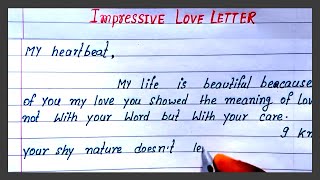 IMPRESSIVE LOVE LETTER
My heartbeat,
My life is beautiful beacause
of you my love you showed the meaning of Lov
not with your Word but with your care.
I kn
your shy nature doesn't le